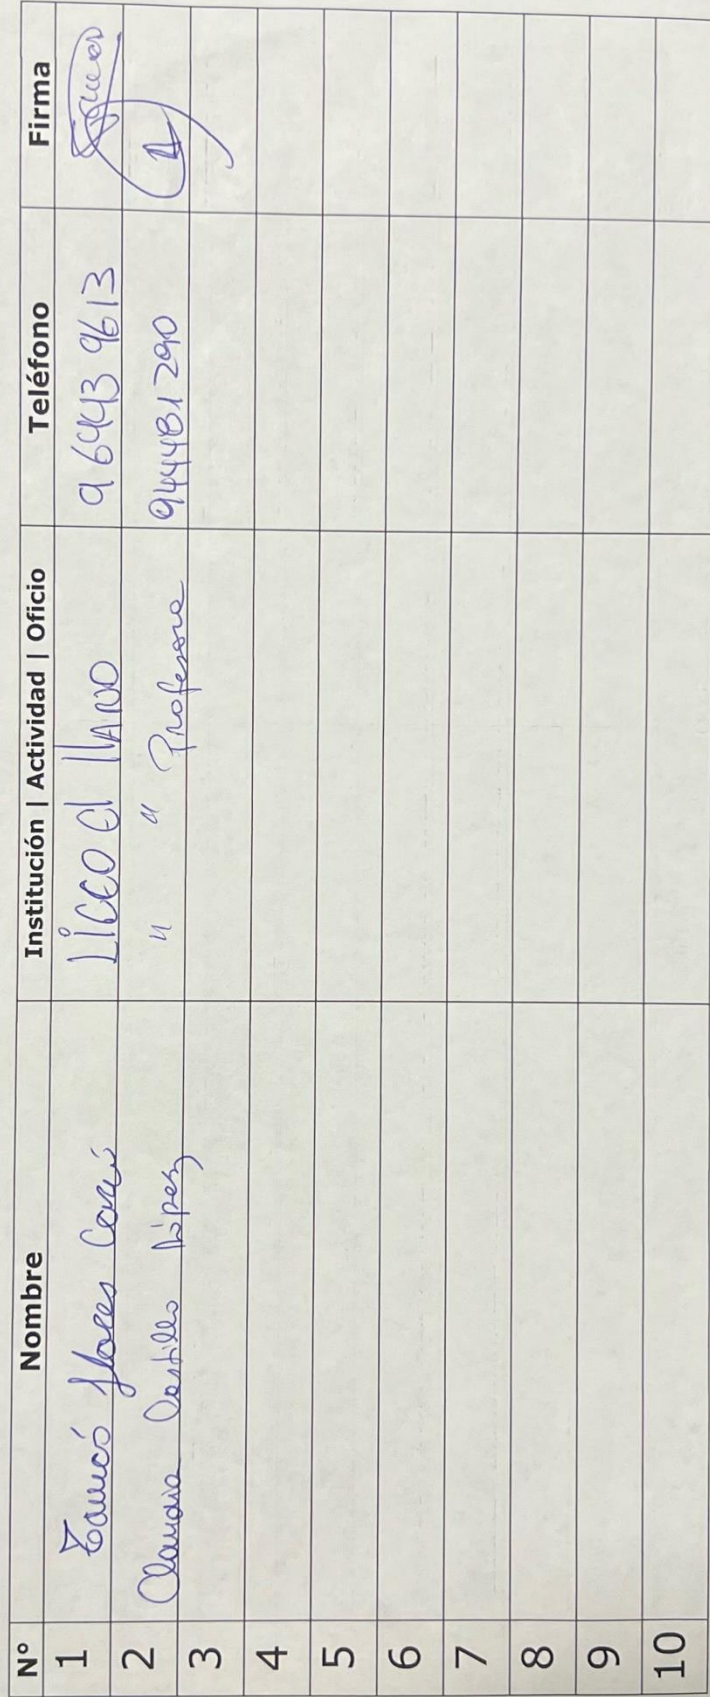 N° Nombre Institución | Actividad | Oficio Teléfono Firma
1 flores Liceo El llANO 964439613
2 Claudia Castillo López " " Profesora 944481290
3
4
5
6
7
8
9
10